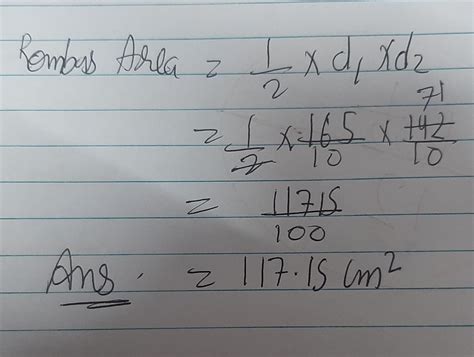 Rombus Area = 1/2 × d₁ × d₂
= 1/2 × 165/10 × 142/10 71
= 11715/100
Ans. = 117.15 cm²